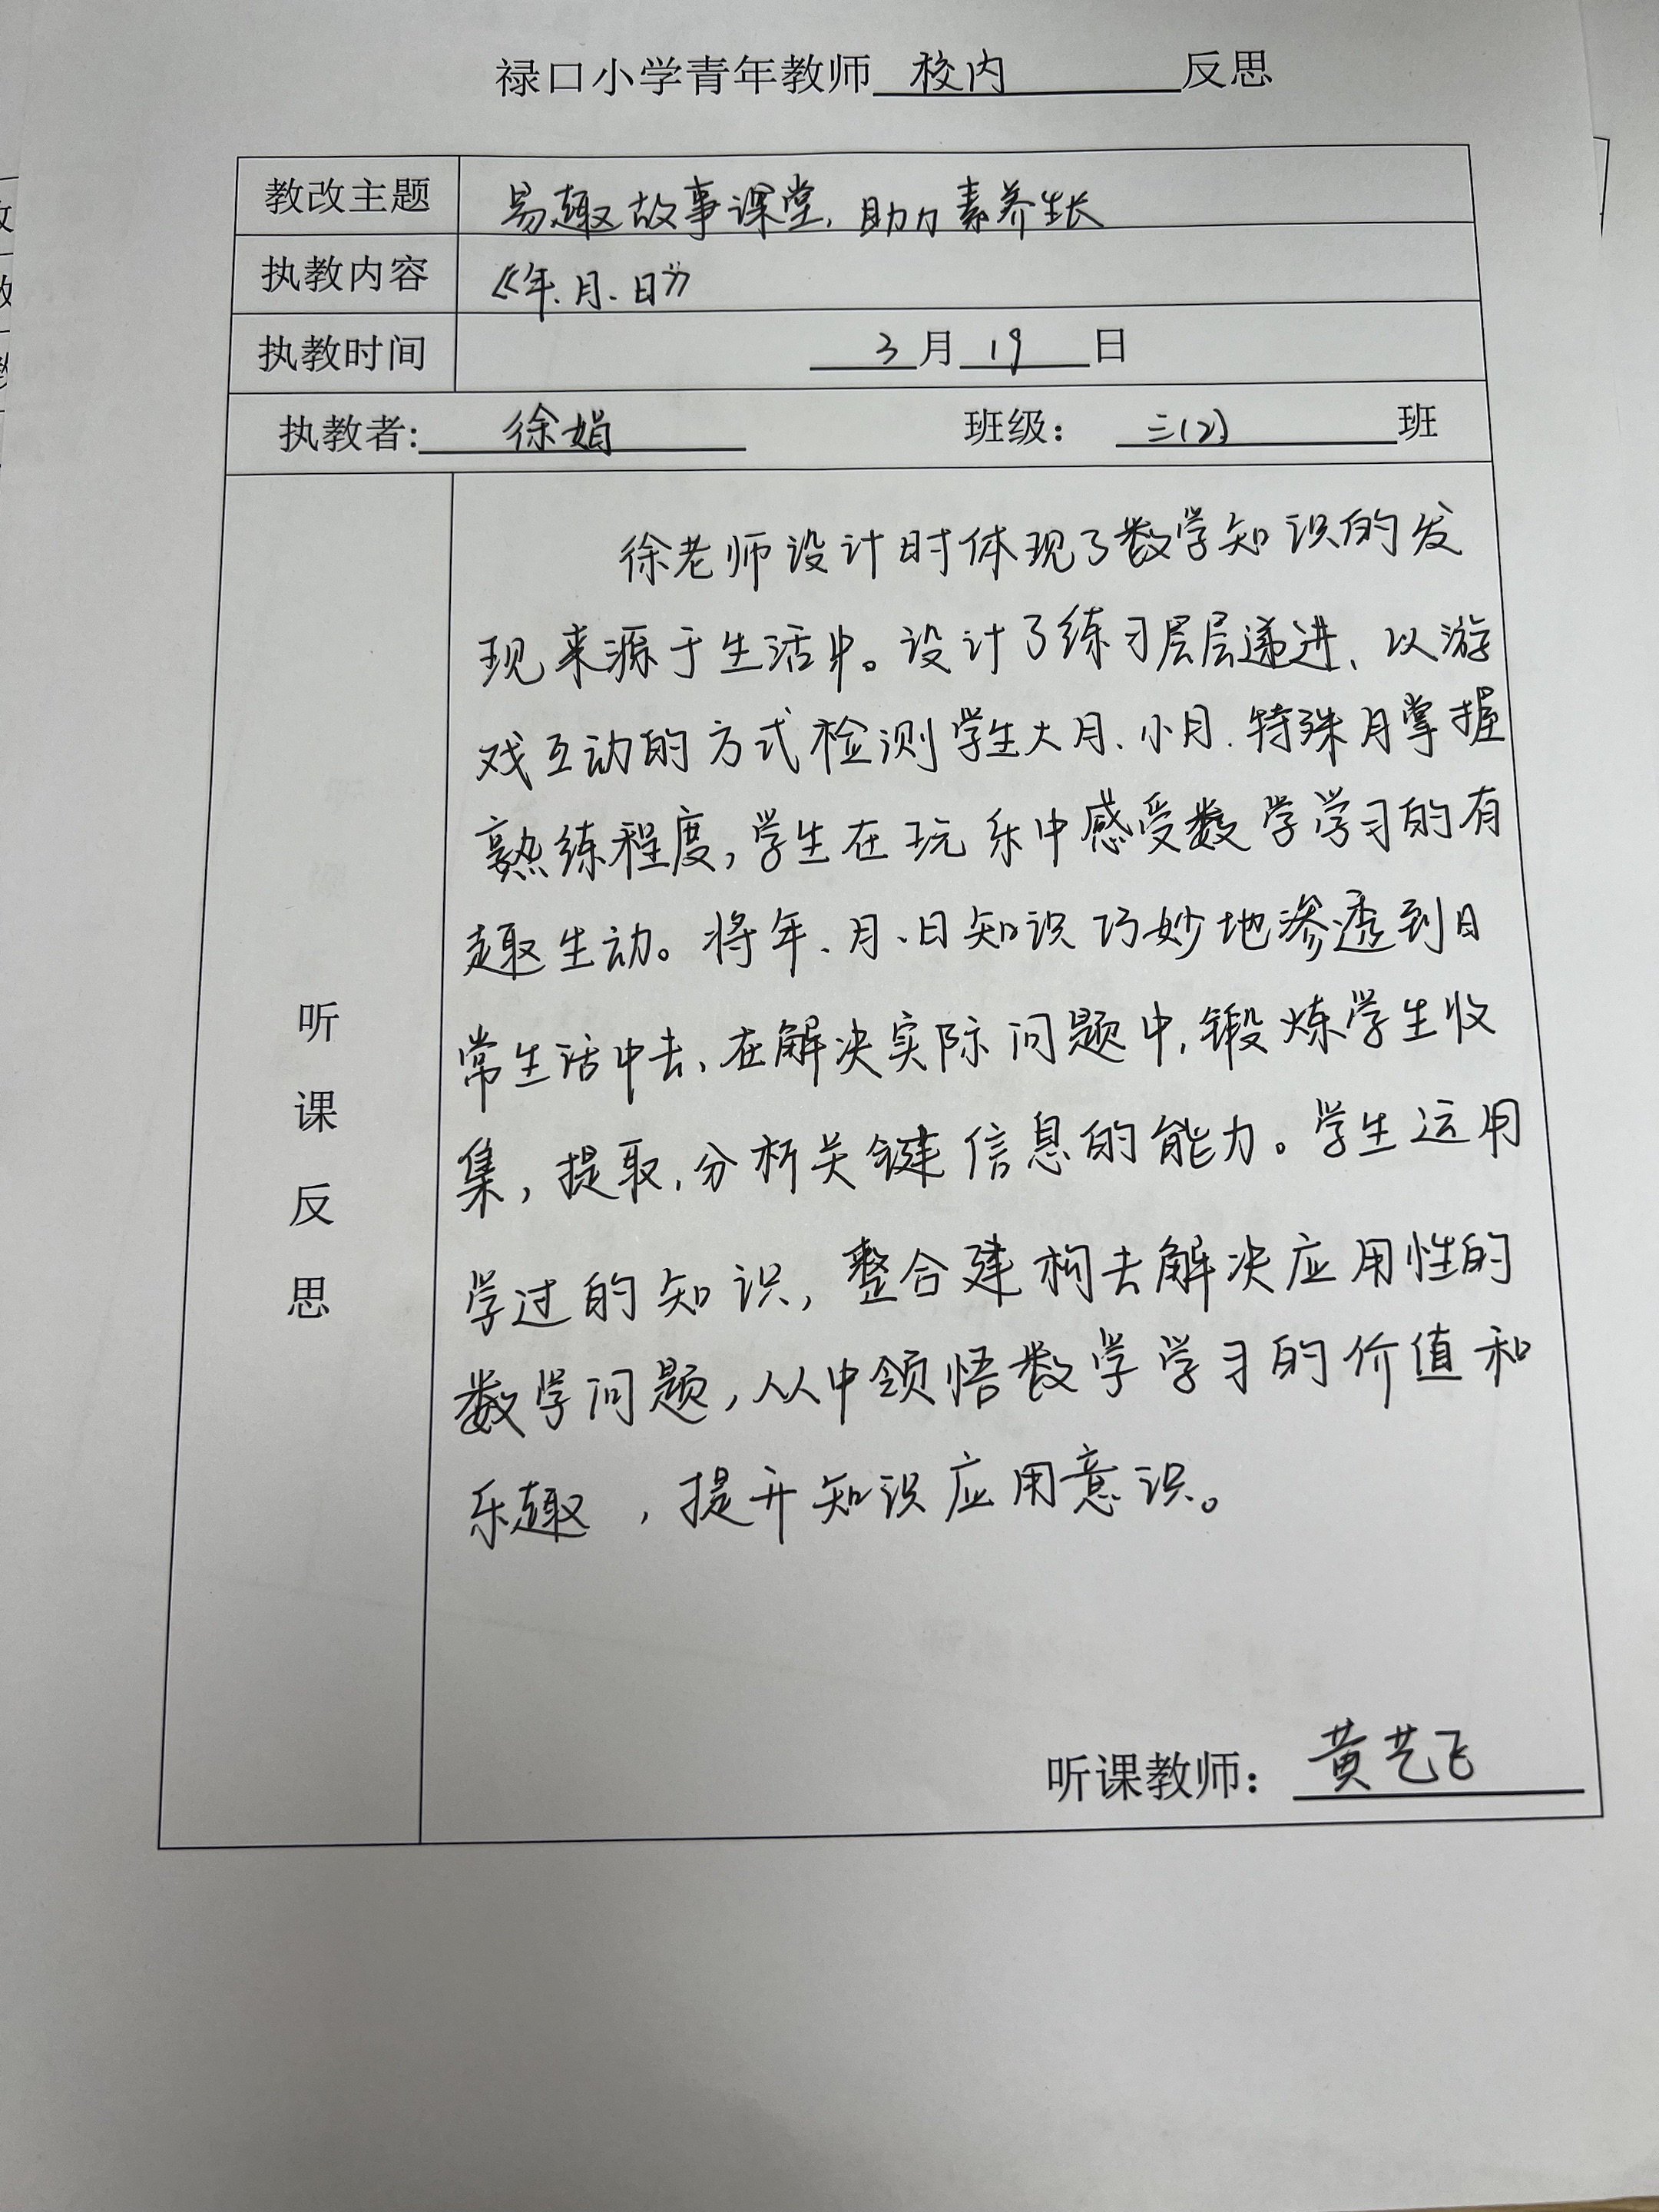 禄口小学青年教师 校内 反思
教改主题 易趣故事课堂，助力素养生长
执教内容 《年、月、日》
执教时间 3月19日
执教者：徐娟 班级：三（2）班
听课反思
徐老师设计时体现了数学知识的发
现来源于生活中。设计了练习层层递进、以游
戏互动的方式检测学生大月、小月、特殊月掌握
熟练程度，学生在玩乐中感受数学学习的有
趣生动。将年、月、日知识巧妙地渗透到日
常生活中去、在解决实际问题中，锻炼学生收
集，提取，分析关键信息的能力。学生运用
学过的知识，整合建构去解决应用性的
数学问题，从中领悟数学学习的价值和
乐趣，提升知识应用意识。
听课教师：黄艺飞